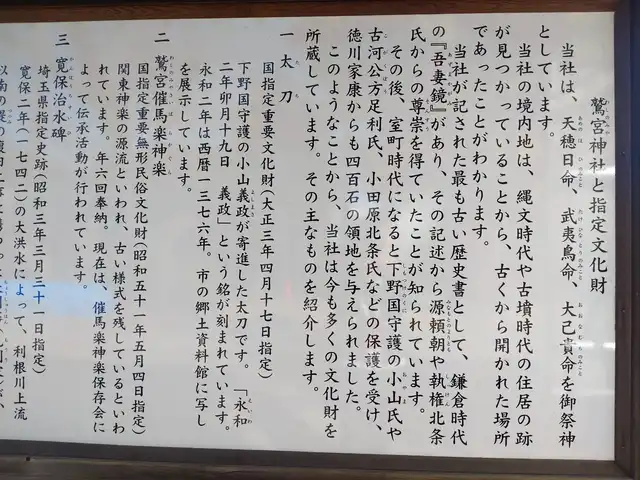 鷲宮神社と指定文化財
当社は、天穂日命、武夷鳥命、大己貴命を御祭神
としています。
当社の境内地は、縄文時代や古墳時代の住居の跡
が見つかっていることから、古くから開かれた場所
であったことがわかります。
当社が記された最も古い歴史書として、鎌倉時代
の『吾妻鏡』があり、その記述から源頼朝や執権北条
氏からの尊崇を得ていたことが知られています。
その後、室町時代になると下野国守護の小山氏や
古河公方足利氏、小田原北条氏などの保護を受け、
徳川家康からも四百石の領地を与えられました。
このようなことから、当社は今も多くの文化財を
所蔵しています。その主なものを紹介します。
一 太刀
国指定重要文化財(大正三年四月十七日指定)
下野国守護の小山義政が寄進した太刀です。「永和
二年卯月十九日 義政」という銘が刻まれています。
永和二年は西暦一三七六年。市の郷土資料館に写し
を展示しています。
二 鷲宮催馬楽神楽
国指定重要無形民俗文化財(昭和五十一年五月四日指定)
関東神楽の源流といわれ、古い様式を残しているといわ
れています。年六回奉納。現在は、催馬楽神楽保存会に
よって伝承活動が行われています。
三 寛保治水碑
埼玉県指定史跡(昭和三年三月三十一日指定)
寛保二年(一七四二)の大洪水によって、利根川上流